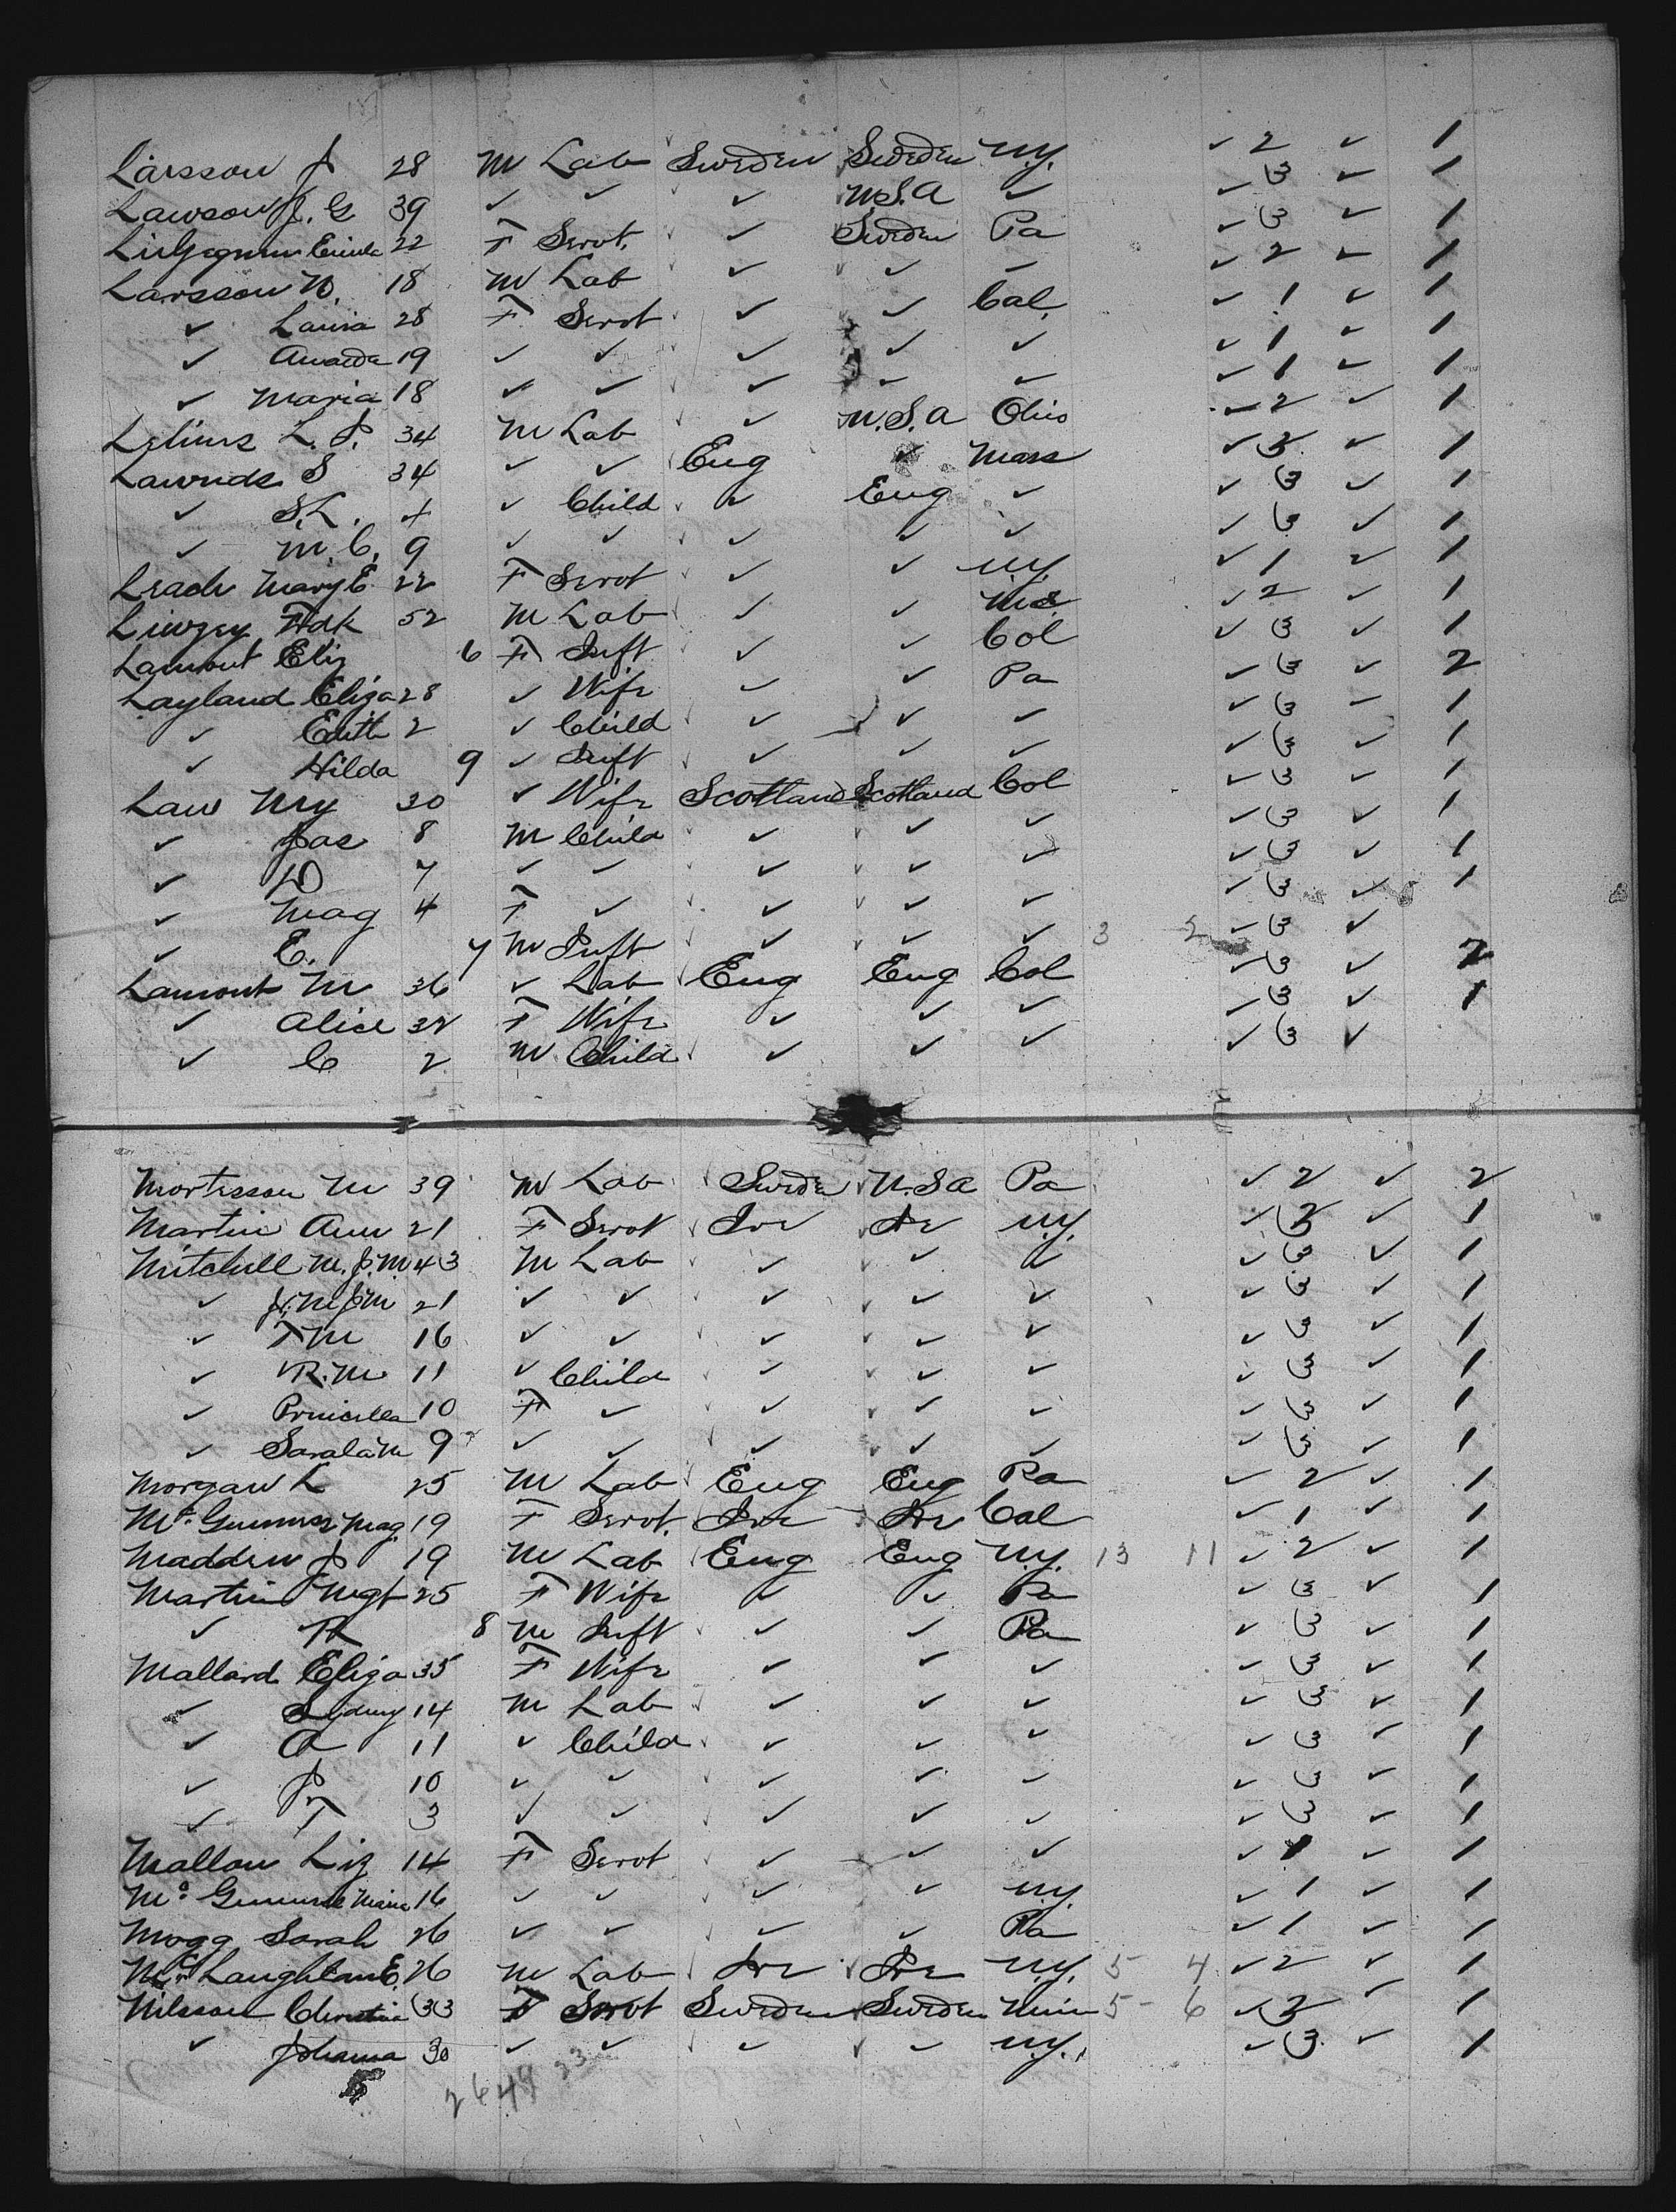 Larsson J 28 M Lab Sweden Sweden N.Y. ✓ 2 ✓ 1
Lawson J. G 39 ✓ ✓ ✓ U.S.A ✓ ✓ 3 ✓ 1
22 F Servt. ✓ Sweden Pa ✓ 3 ✓ 1
Larsson N. 18 M Lab ✓ ✓ – ✓ 2 ✓ 1
✓ Laura 28 F Servt ✓ ✓ Cal. ✓ 1 ✓ 1
✓ Amanda 19 ✓ ✓ ✓ ✓ ✓ ✓ 1 ✓ 1
✓ Maria 18 ✓ ✓ ✓ ✓ ✓ ✓ 1 ✓ 1
L. P. 34 M Lab ✓ U.S.A Ohio ✓ 2 ✓ 1
S 34 ✓ ✓ Eng ✓ Mass ✓ 3 ✓ 1
✓ S.L. 4 ✓ Child ✓ Eng ✓ ✓ 3 ✓ 1
✓ M.C. 9 ✓ ✓ ✓ ✓ ✓ ✓ 3 ✓ 1
Leach Mary E. 22 F Servt ✓ ✓ N.Y. ✓ 1 ✓ 1
Livzey Fdk 52 M Lab ✓ ✓ ✓ 2 ✓ 1
Lamont Eliz 6 F Inft ✓ ✓ Col ✓ 3 ✓ 1
Layland Eliza 28 ✓ Wife ✓ ✓ Pa ✓ 3 ✓ 2
✓ Edith 2 ✓ Child ✓ ✓ ✓ ✓ 3 – 1
✓ Hilda 9 ✓ Inft ✓ ✓ ✓ ✓ 3 ✓ 1
Law My 30 ✓ Wife Scotland Scotland Col ✓ 3 ✓ 1
✓ Jas 8 M Child ✓ ✓ ✓ ✓ 3 ✓ 1
✓ D 7 ✓ ✓ ✓ ✓ ✓ ✓ 3 ✓ 1
✓ Mag 4 F ✓ ✓ ✓ ✓ ✓ 3 ✓ 1
✓ E. 7 M Inft ✓ ✓ ✓ 3 2 ✓ 3 ✓
Lamont M 36 ✓ Lab Eng Eng Col ✓ 3 ✓ 2
✓ Alice 32 F Wife ✓ ✓ ✓ ✓ 3 ✓ 1
✓ C 2 M Child ✓ ✓ ✓ ✓ 3 ✓
Mortesson M 39 M Lab Sweden U.S.A Pa ✓ 2 ✓ 2
Martin Ann 21 F Servt Ire Ire N.Y. ✓ 3 ✓ 1
Mitchell M. J. M. 43 M Lab ✓ ✓ ✓ ✓ 3 ✓ 1
✓ 21 ✓ ✓ ✓ ✓ ✓ ✓ 3 ✓ 1
✓ T M 16 ✓ ✓ ✓ ✓ ✓ ✓ 3 ✓ 1
✓ R. M. 11 ✓ Child ✓ ✓ ✓ ✓ 3 ✓ 1
✓ 10 F ✓ ✓ ✓ ✓ ✓ 3 ✓ 1
✓ Sarah M 9 ✓ ✓ ✓ ✓ ✓ ✓ 3 ✓ 1
Morgan L 25 M Lab Eng Eng Pa ✓ 2 ✓ 1
Mag. 19 F Servt. Ire Ire Cal ✓ 1 ✓ 1
Madden J 19 M Lab Eng Eng N.Y. 13 11 ✓ 2 ✓ 1
Martin Mgt 25 F Wife ✓ ✓ Pa ✓ 3 ✓ 1
✓ 8 M Inft ✓ ✓ Pa ✓ 3 ✓ 1
Mallard Eliza 35 F Wife ✓ ✓ ✓ ✓ 3 ✓ 1
✓ Sydney 14 M Lab ✓ ✓ ✓ ✓ 3 ✓ 1
✓ A 11 ✓ Child ✓ ✓ ✓ ✓ 3 ✓ 1
✓ J 10 ✓ ✓ ✓ ✓ ✓ ✓ 3 ✓ 1
✓ T 3 ✓ ✓ ✓ ✓ ✓ ✓ 3 ✓ 1
Mallon Liz 14 F Servt ✓ ✓ ✓ ✓ 1 ✓ 1
Maria 16 ✓ ✓ ✓ ✓ N.Y. ✓ 1 ✓ 1
Mogg Sarah 26 ✓ ✓ ✓ ✓ Pa ✓ 1 ✓ 1
McLaughlan E. 26 M Lab Ire Ire N.Y. 5 4 ✓ 2 ✓ 1
Nilsson Christina 33 F Servt Sweden Sweden Minn 5 – 6 ✓ 3 ✓ 1
✓ Johanna 30 ✓ ✓ ✓ ✓ N.Y. ✓ 3 ✓ 1